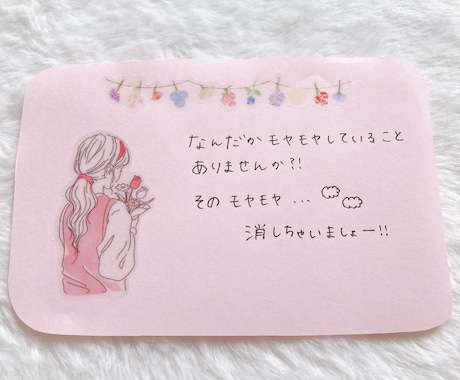 なんだかモヤモヤしていること
ありませんか?!
そのモヤモヤ...
消しちゃいましょー!!